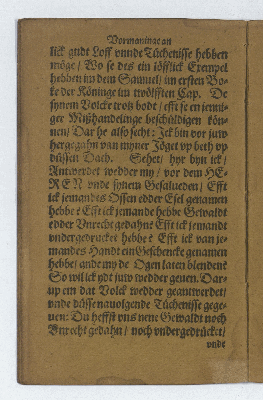 Vormaninge an
lick gudt Loff vnnde Tüchenisse hebben
möge / Wo se des ein löfflick Exempel
hebben im dem Samuel / im ersten Bo-
ke der Köninge im twölfften Cap. De
synem Volcke trotz bodt / efft se en jenni-
ger Mißhandelinge beschüldigen kön-
nen / Dar he also secht: Ick bin vor juw
hergegahn van myner Jöget vp beth vp
düssen Dach. Sehet / hyr byn ick /
Antwerdet wedder my / vor dem HE-
REN vnde synem Gesalueden / Efft
ick jemandes Ossen edder Esel genamen
hebbe? Efft ick jemande hebbe Gewaldt
edder Vnrecht gedahn? Efft ick jemandt
vndergedrucket hebbe? Efft ick van je-
mandes Handt ein Geschencke genamen
hebbe / vnde my de Ogen laten blenden?
So wil ick ydt juw wedder geuen. Dar-
up em dat Volck wedder geantwerdet /
vnde düsse nauolgende Tüchenisse gege-
uen: Du heffst vns nene Gewaldt noch
Vnrecht gedahn / noch vndergedrücket /
vnde